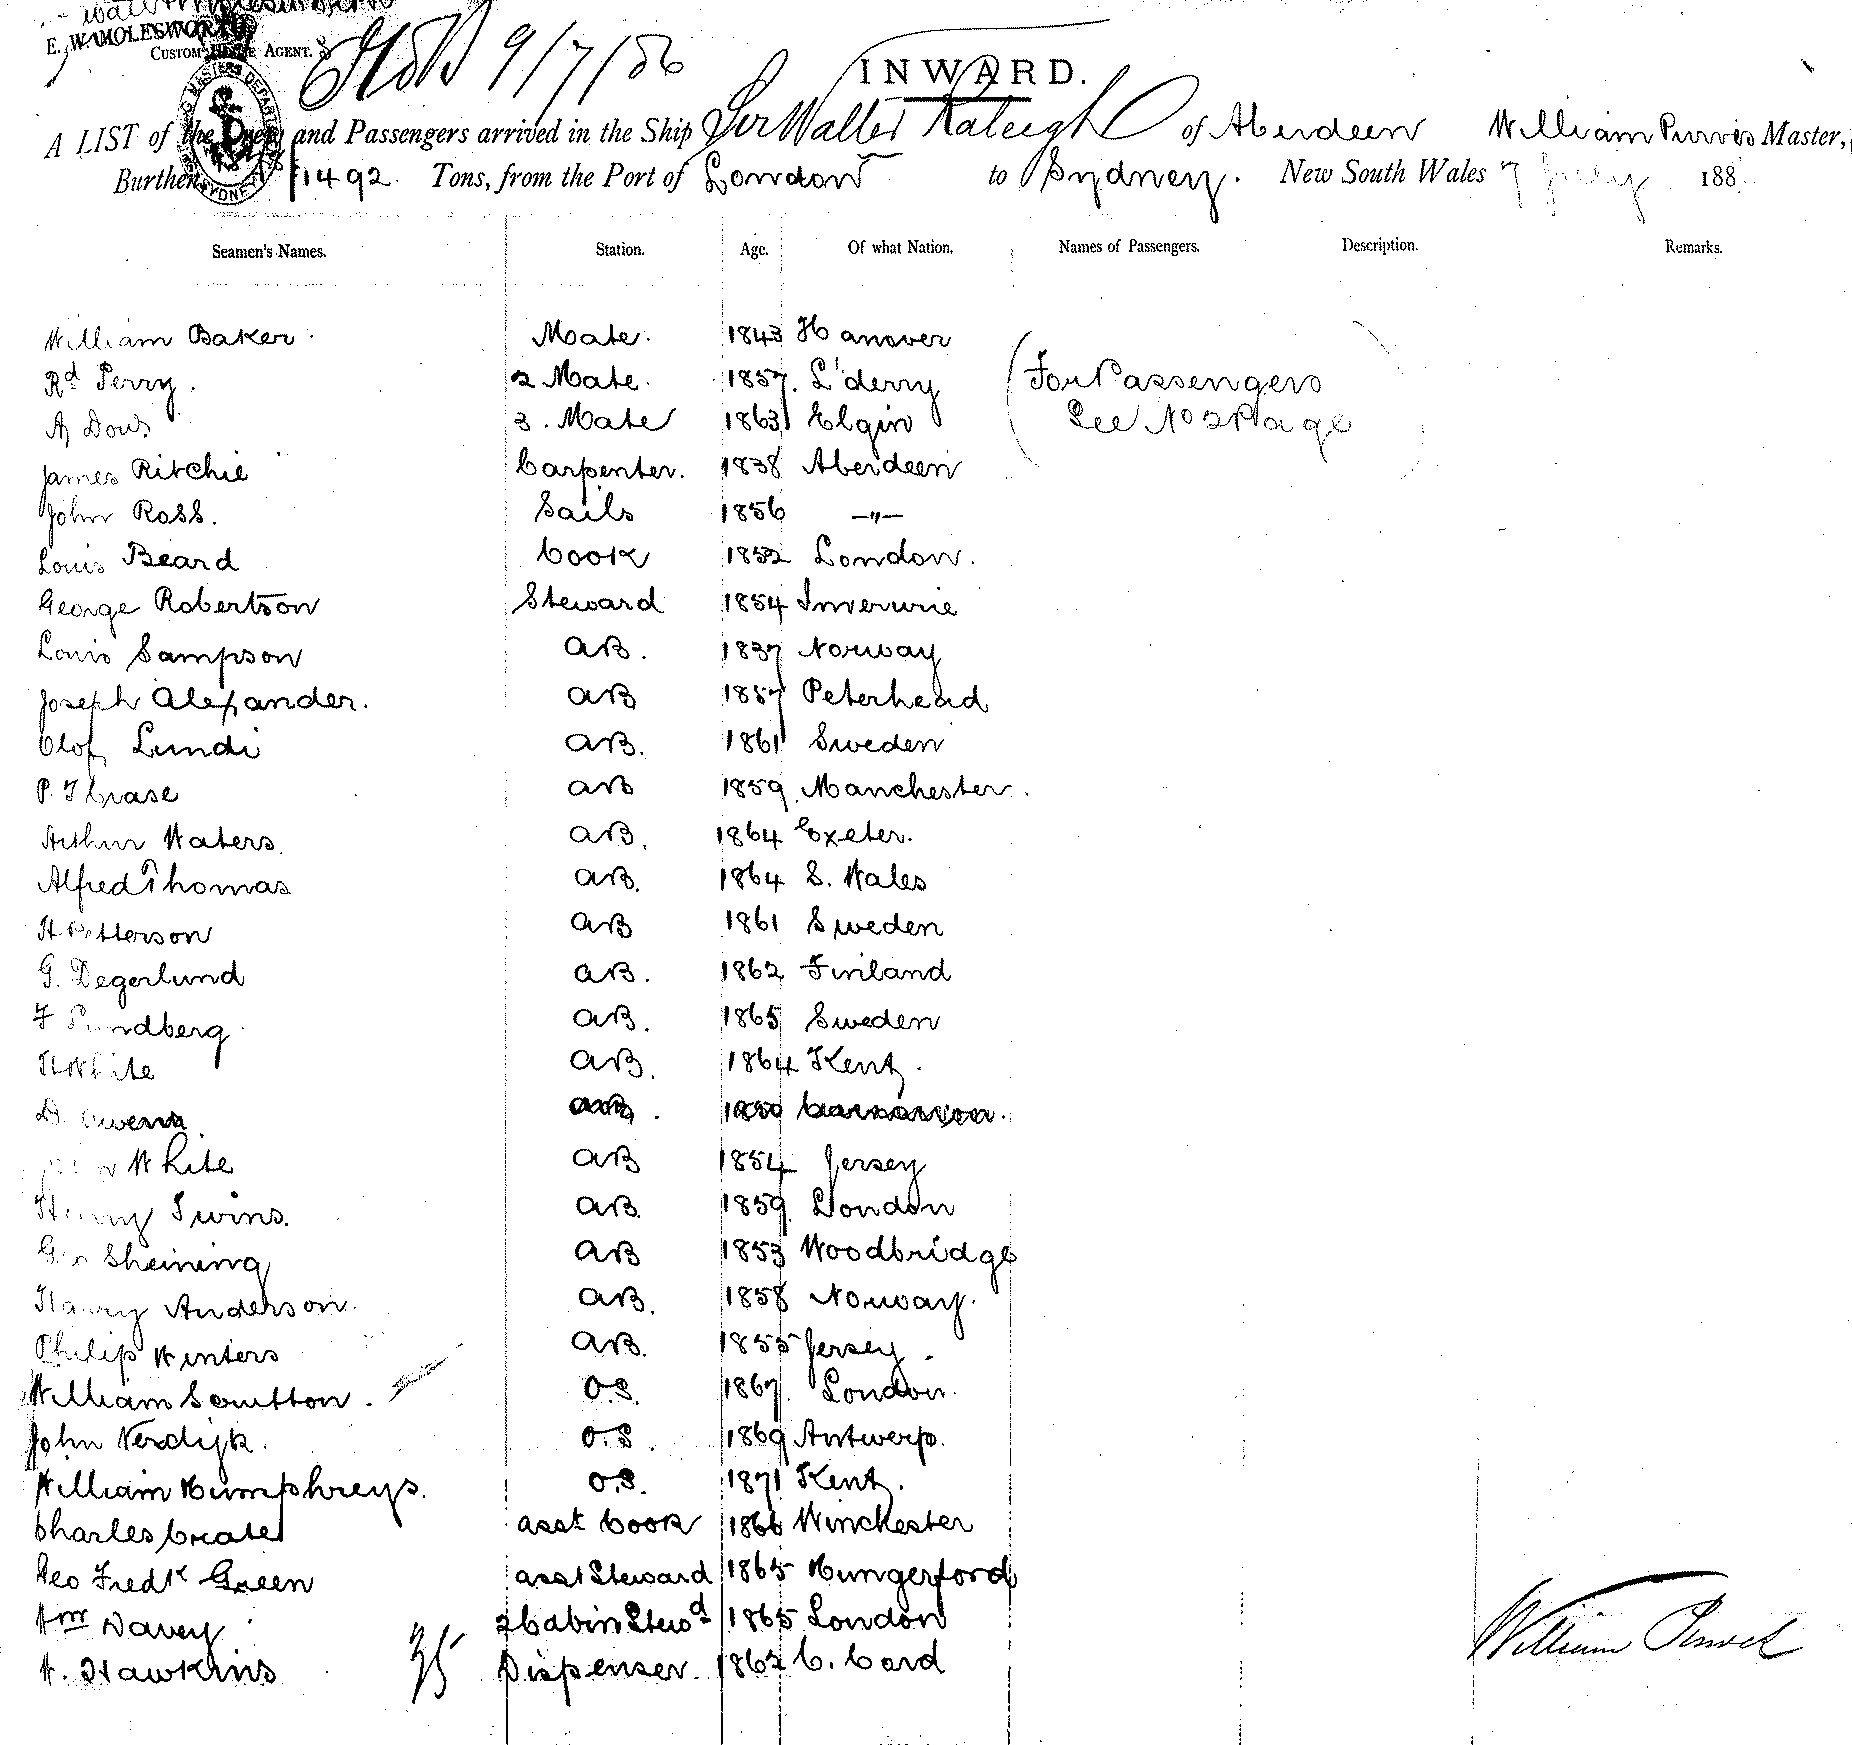 E. W. MOLESWORTH
CUSTOM HOUSE AGENT.
9/7/86
INWARD.
A LIST of the Crew and Passengers arrived in the Ship Sir Walter Raleigh of Aberdeen William Purves Master,
Burthen 1492 Tons, from the Port of London to Sydney. New South Wales 7 July 188
Seamen's Names. Station. Age. Of what Nation. Names of Passengers. Description. Remarks.
William Baker Mate. 1843 Hanover
Rd Perry. 2 Mate. 1857. L'derry (For Passengers
A Dows 3. Mate 1863 Elgin See No 2 Page
James Ritchie Carpenter. 1838 Aberdeen
John Ross. Sails 1856 —"—
Louis Beard Cook 1852 London.
George Robertson Steward 1854 Inverurie
Louis Sampson AB. 1837 Norway
Joseph Alexander. AB 1857 Peterhead
Olof Lundi AB. 1861 Sweden
P. F Crase AB 1859 Manchester.
Arthur Waters AB. 1864 Exeter.
Alfred Thomas AB. 1864 S. Wales
H Petterson AB 1861 Sweden
G. Degerlund AB. 1862 Finland
F AB. 1865 Sweden
H White AB. 1864 Kent.
D. Owens AB. Carnarvon.
White AB 1854 Jersey
Henry Twins. AB. 1859 London
Geo Sheining AB 1853 Woodbridge
Harry Anderson. AB. 1858 Norway.
Philip Winters AB. 1855 Jersey.
William Scrutton. O.S. 1867. London.
John Verdijk. O.S. 1869 Antwerp.
William Humphreys. O.S. 1871 Kent.
Charles Crate asst Cook 1866 Winchester
Geo Fredk Green asst Steward 1865 Hungerford
Wm Davey 2 Cabin Stewd 1865 London
W. Hawkins 35 Dispenser. 1862 C. Card
William Purves